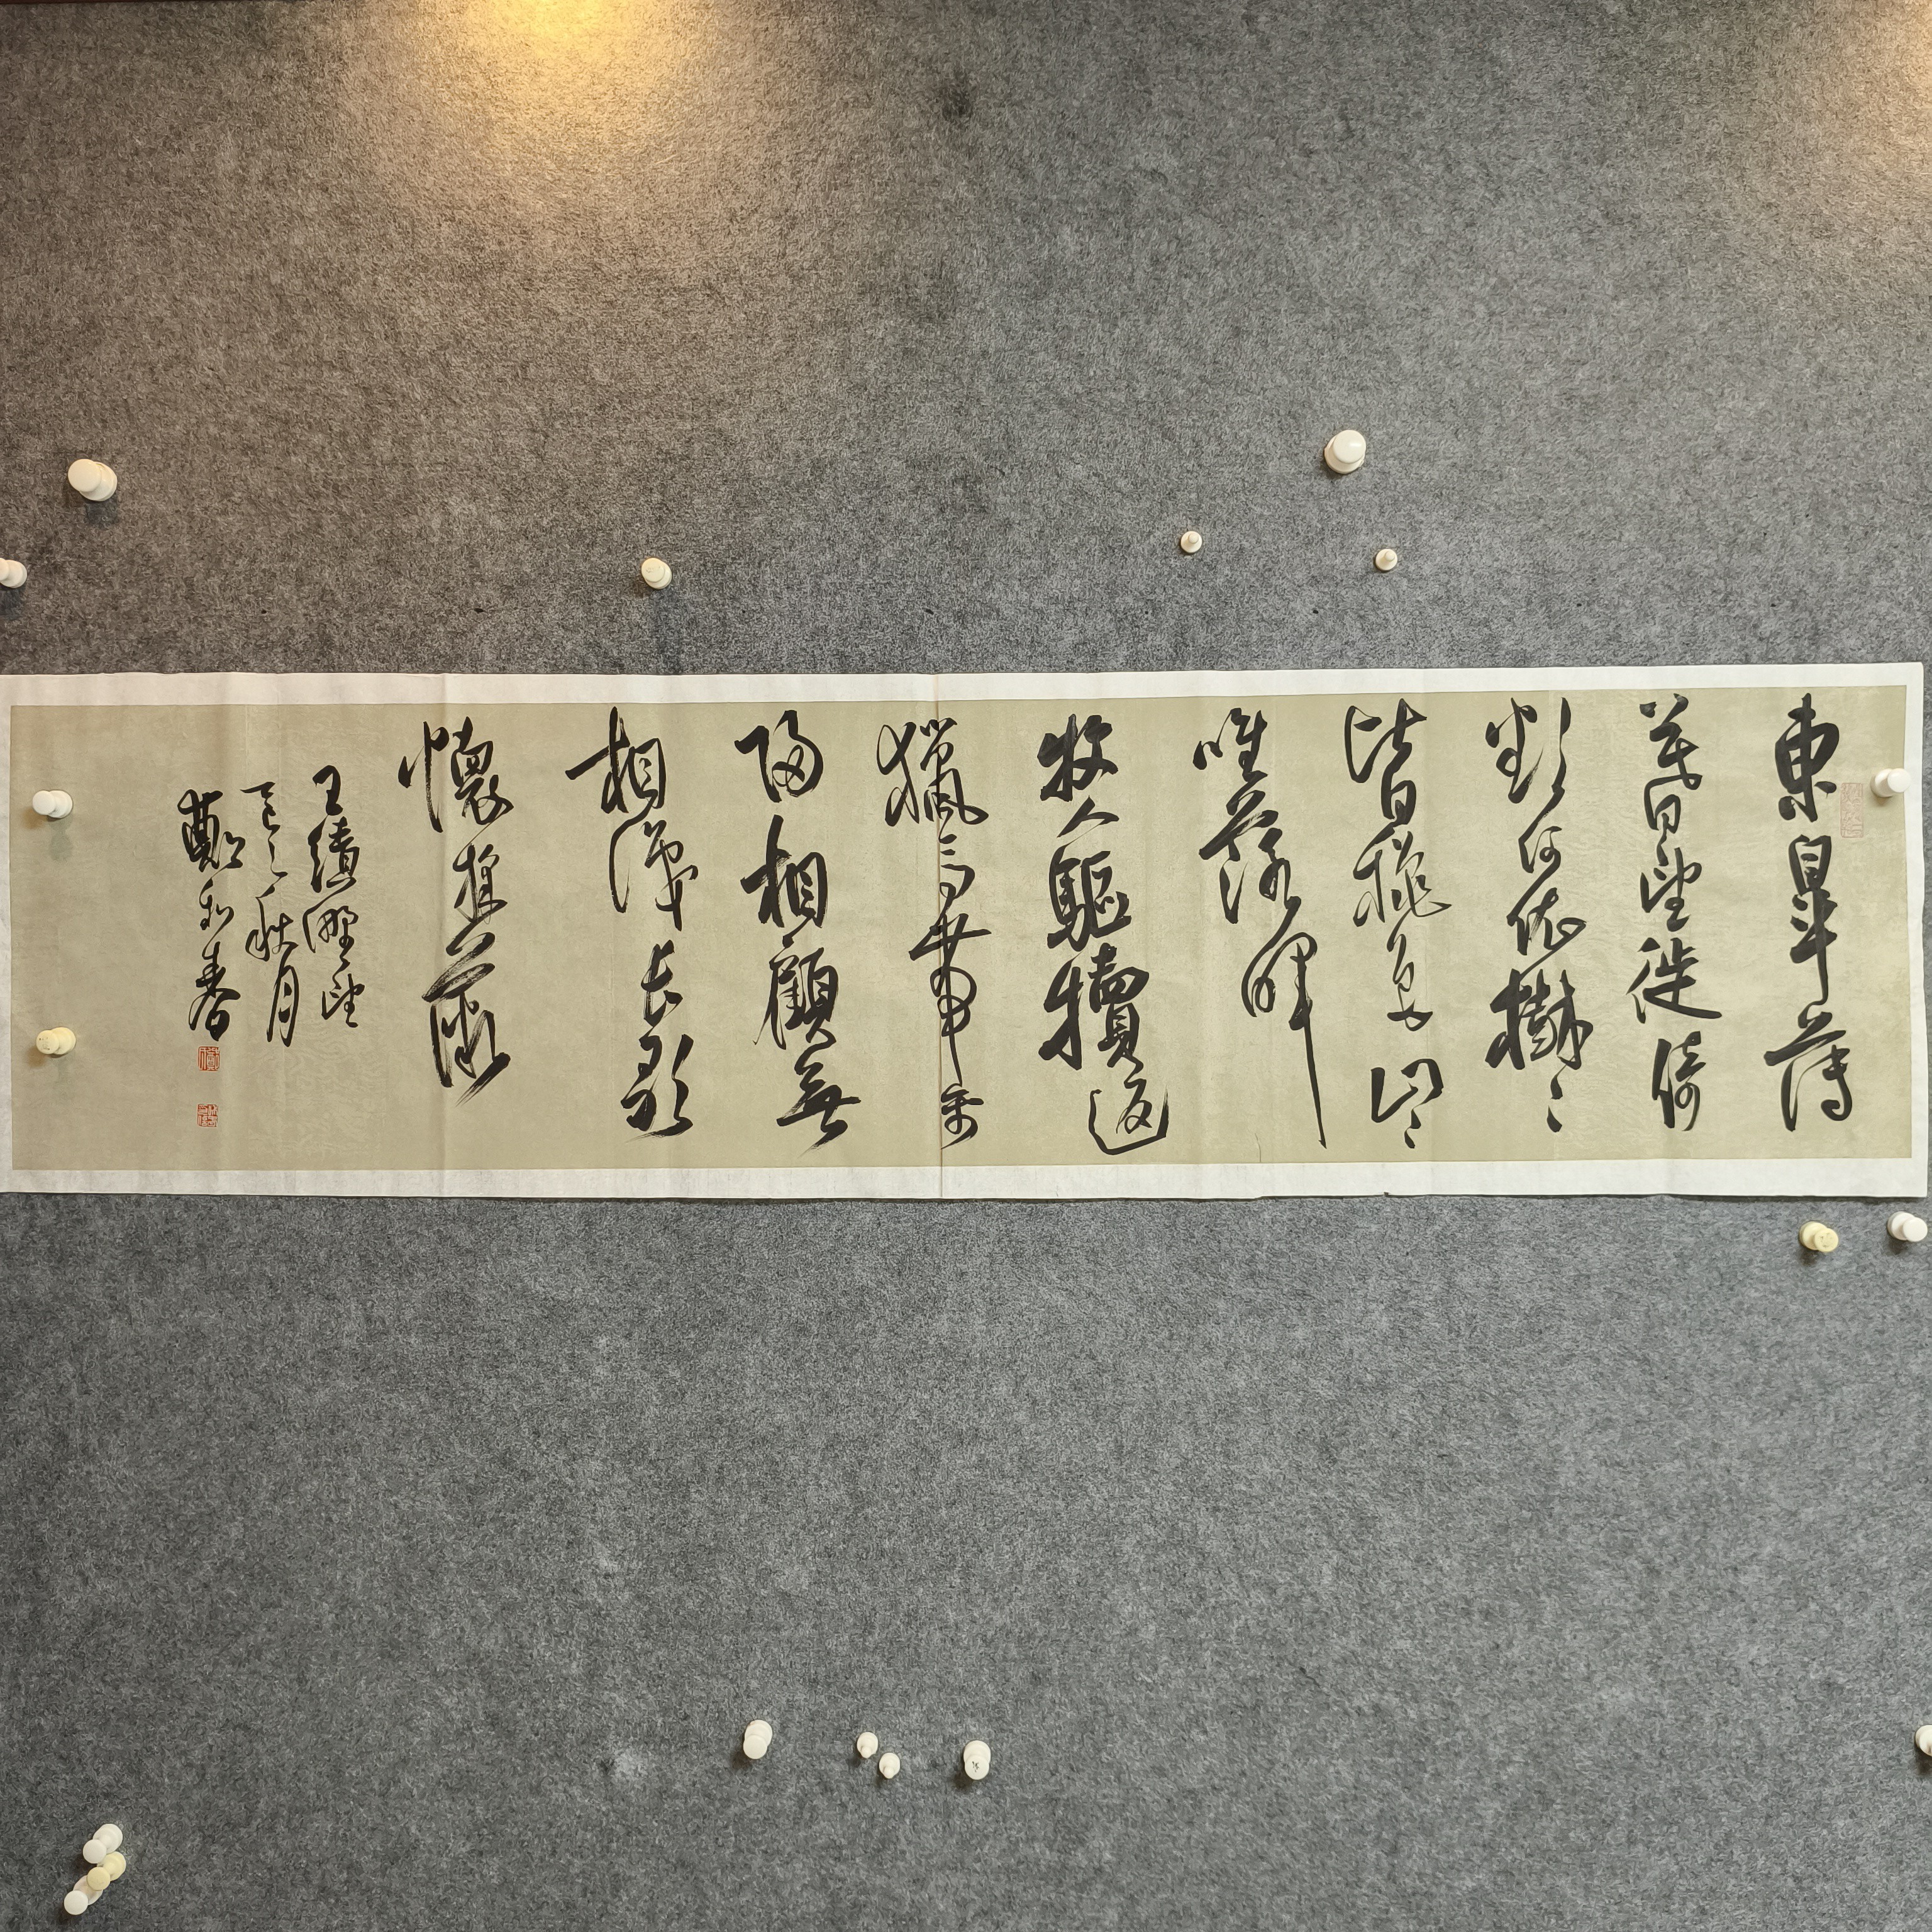 東皋薄
暮望徙倚
欲何依樹々
皆穐色山々
唯落暉
牧人驅犢返
獵馬帶禽
歸相顧無
相識長歌
懷採薇
王績野望
乙巳秋月
鄭和春